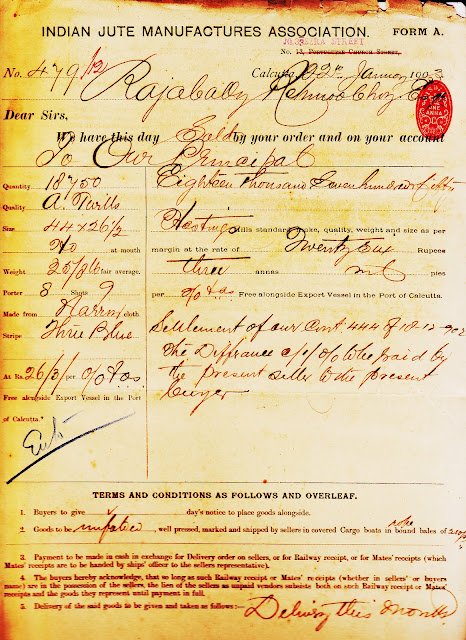 INDIAN JUTE MANUFACTURES ASSOCIATION. FORM A.
STREET
No. 13, PORTUGUESE CHURCH STREET,
No. 479/12 Calcutta, 2nd January 1903
Rajabally
Dear Sirs,
We have this day Sold by your order and on your account
To Our Principal
Quantity 18750 Eighteen thousand Seven hundred & fifty
Quality A. Twills Hastings Mills standard make, quality, weight and size as per
Size 44 x 26 1/2
No at mouth margin at the rate of Twenty Six Rupees
Weight fair average. three annas nil pies
Porter 8 Shots 9 per Free alongside Export Vessel in the Port of Calcutta.
Made from cloth
Stripe Three Blue Settlement of our Cont 444 of 18-12-902
The Differance to be paid by
At Rs. 26/3/ per the Present Seller to the present
Free alongside Export Vessel in the Port Buyer
of Calcutta."
TERMS AND CONDITIONS AS FOLLOWS AND OVERLEAF.
1. Buyers to give day's notice to place goods alongside.
2. Goods to be , well pressed, marked and shipped by sellers in covered Cargo boats in bound bales of
3. Payment to be made in cash in exchange for Delivery order on sellers, or for Railway receipt, or for Mates' receipts (which
Mates' receipts are to be handed by ships' officer to the sellers representative).
4. The buyers hereby acknowledge, that so long as such Railway receipt or Mates' receipts (whether in sellers' or buyers
name) are in the possession of the sellers, the lien of the sellers as unpaid vendors subsists both on such Railway receipt or Mates'
receipts and the goods they represent until payment in full.
5. Delivery of the said goods to be given and taken as follows:— Delivery this month